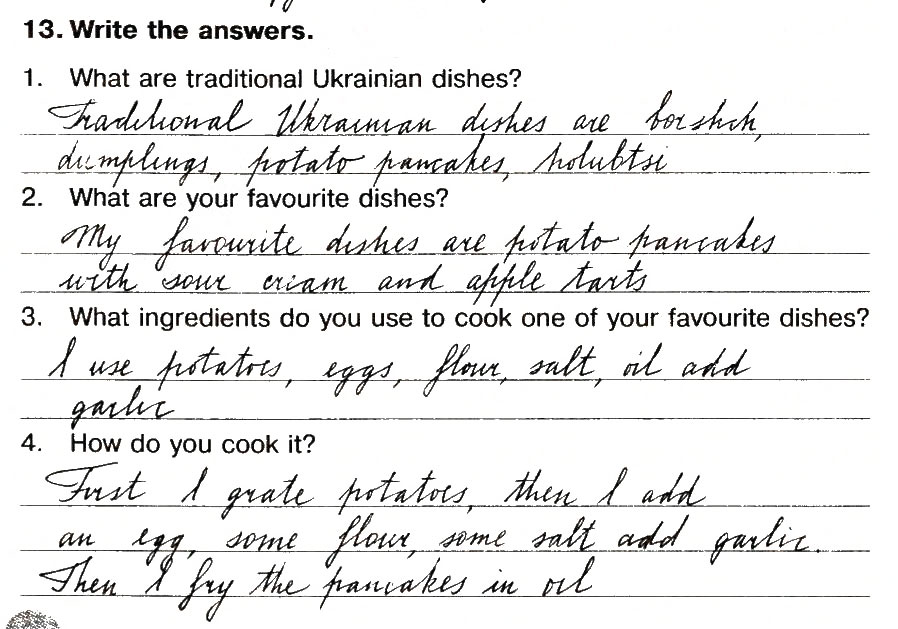 13. Write the answers.
1. What are traditional Ukrainian dishes?
Traditional Ukrainian dishes are borshch,
dumplings, potato pancakes, holubtsi
2. What are your favourite dishes?
My favourite dishes are potato pancakes
with sour cream and apple tarts
3. What ingredients do you use to cook one of your favourite dishes?
I use potatoes, eggs, flour, salt, oil add
garlic
4. How do you cook it?
First I grate potatoes, then I add
an egg, some flour, some salt add garlic.
Then I fry the pancakes in oil